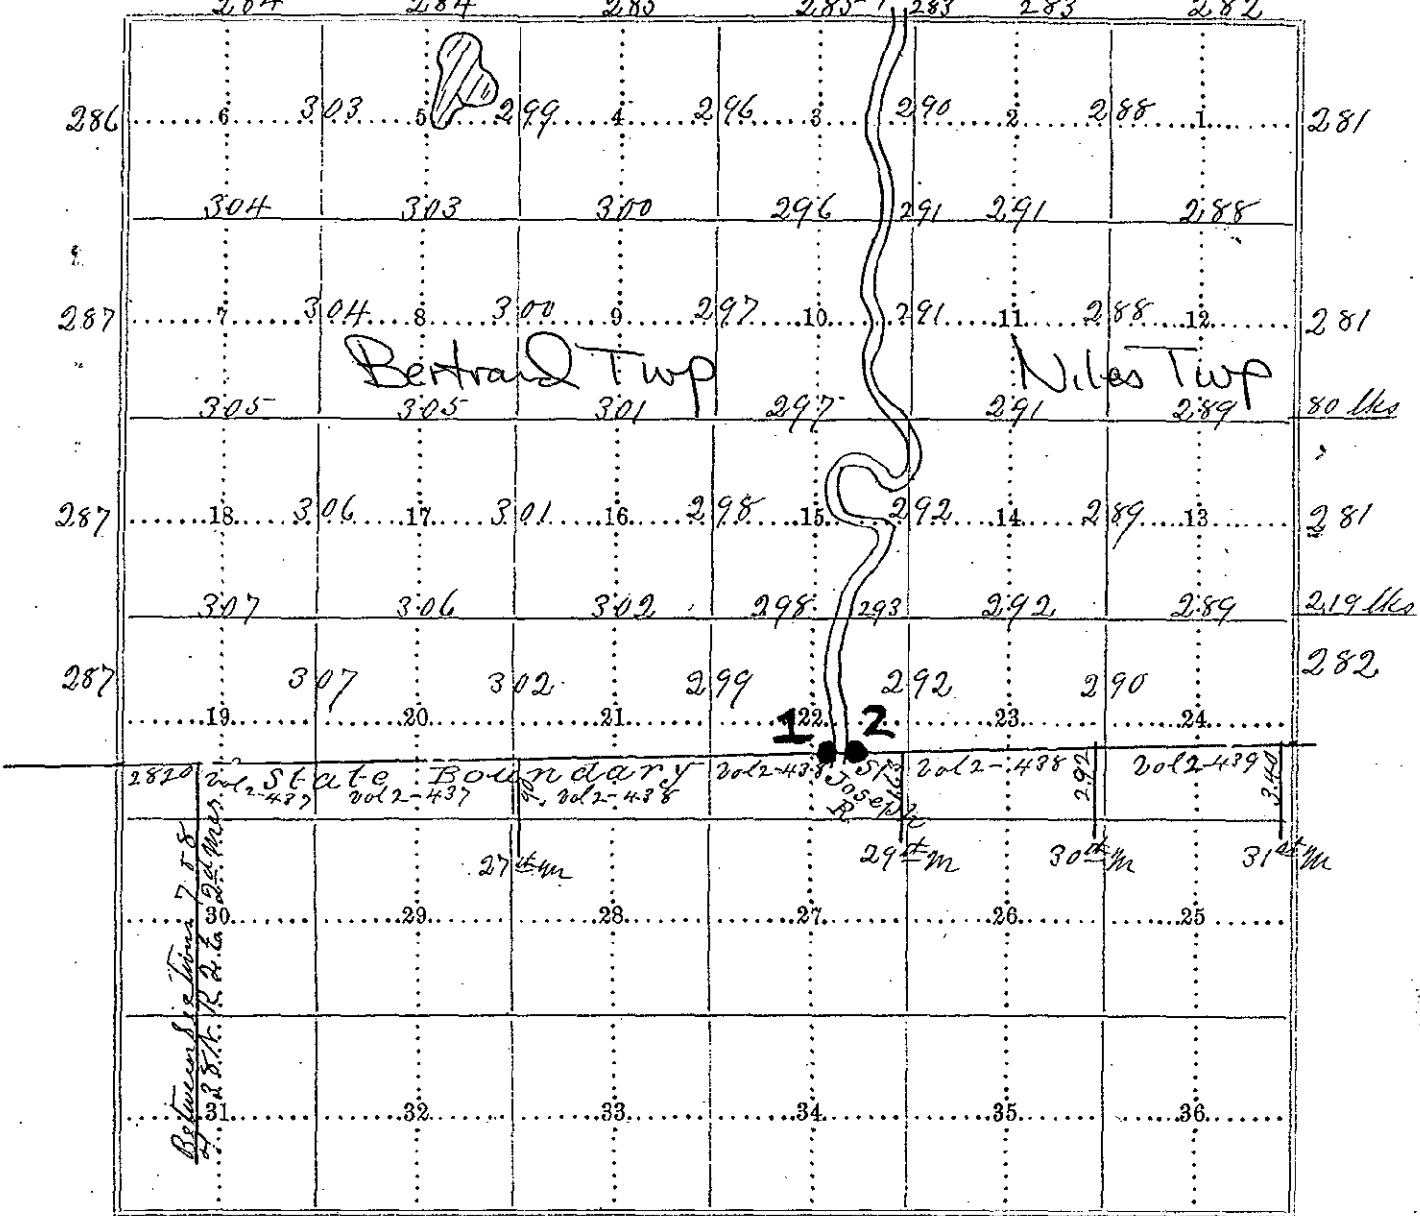 284 284 285 285 283 283 282
286 6 303 5 299 4 296 3 290 2 288 1 281
304 303 300 296 291 291 288
287 7 304 8 300 9 297 10 291 11 288 12 281
Bertrand Twp Niles Twp
305 305 301 297 291 289 80 lks
287 18 306 17 301 16 298 15 292 14 289 13 281
307 306 302 298 293 292 289 219 lks
287 307 302 299 292 290 282
19 20 21 22 23 24
1 2
2820 State Boundary
vol 2-437 vol 2-437 vol 2-438 vol 2-438 St Joseph R vol 2-438 292 vol 2-439 340
27th m 29th m 30th m 31st m
30 29 28 27 26 25
Between Sections 7 & 8
T 38 N. R. 2 E. 2d Mer.
31 32 33 34 35 36